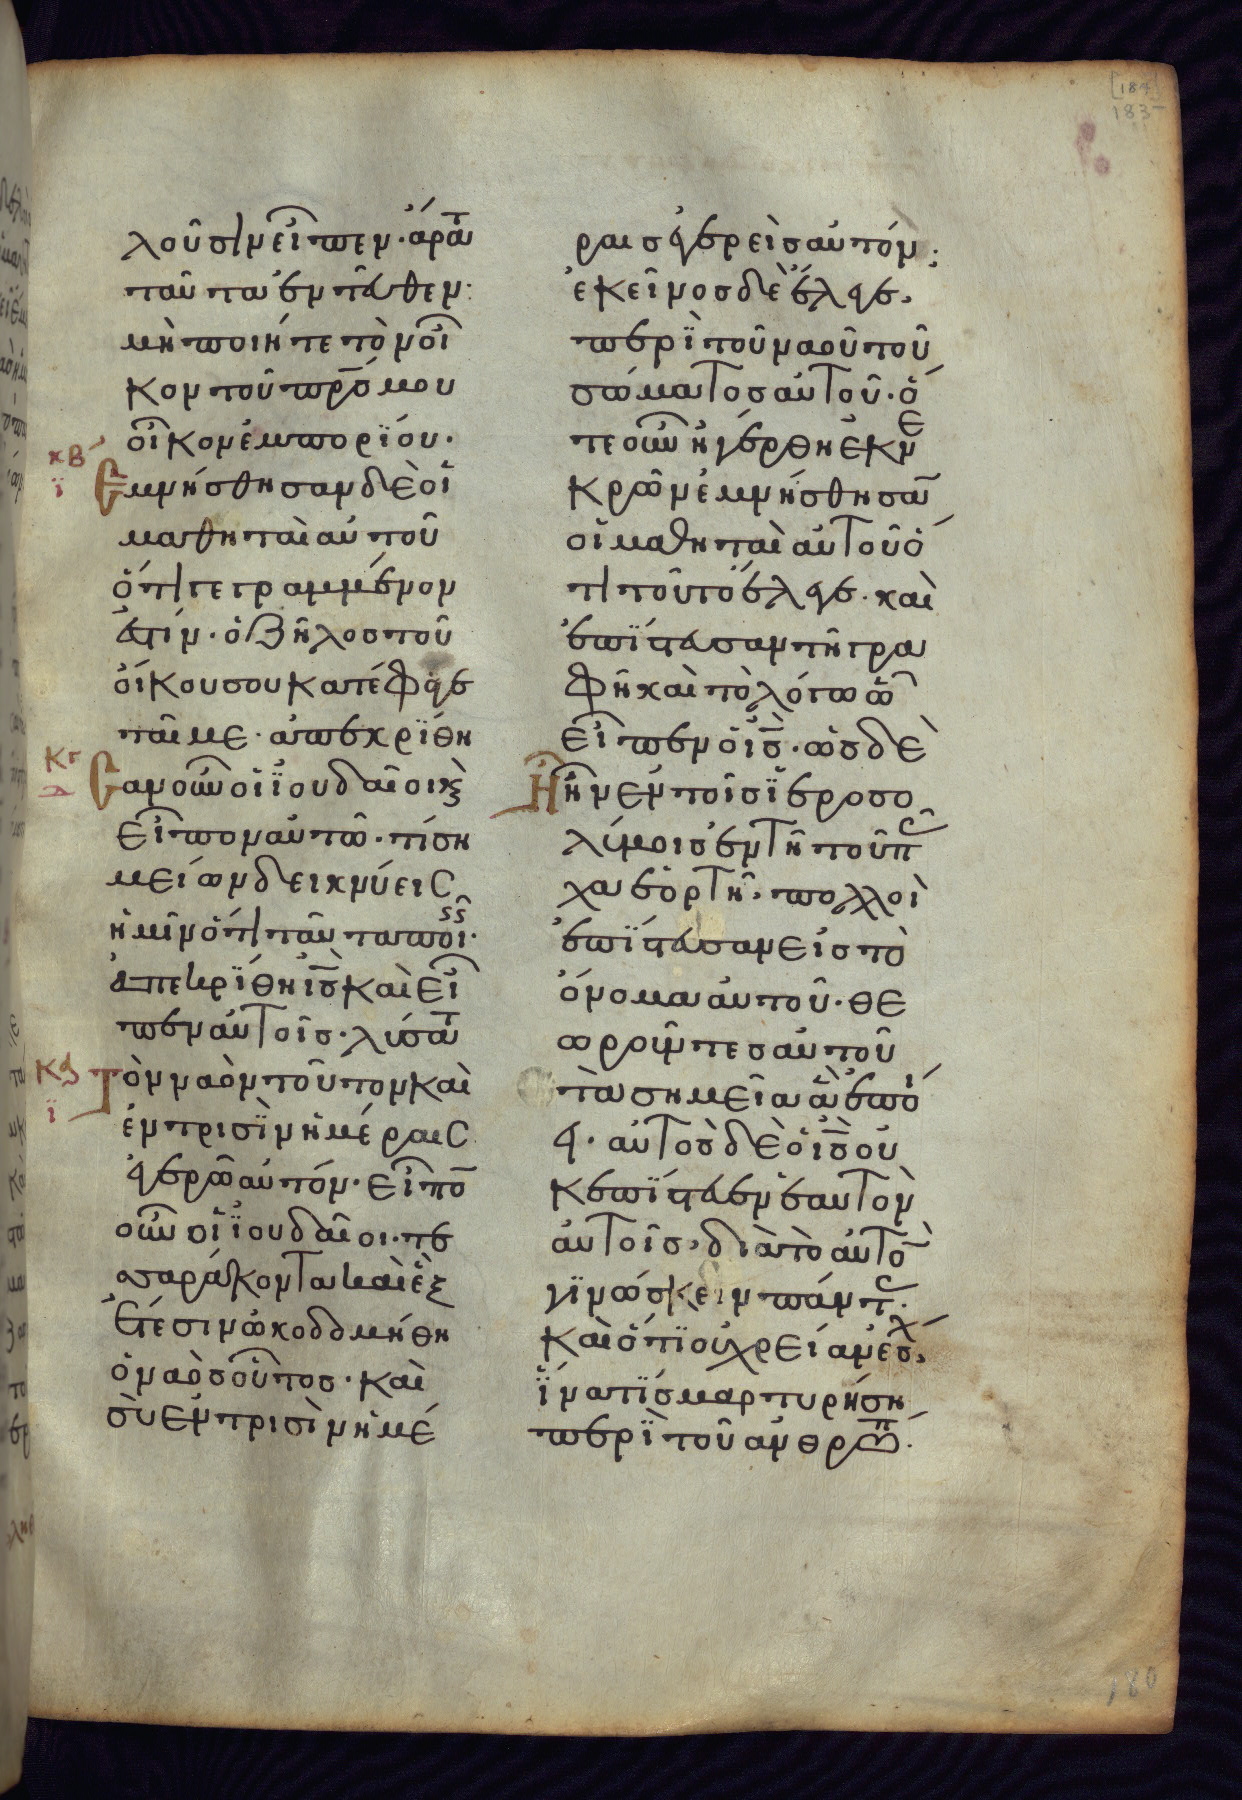 [184]
183
λοῦσιν εἶπεν· ἄρατ̅ε
ταῦτα ἐντεῦθεν·
μὴ ποιῆτε τὸν οἶ
κον τοῦ π̅ρ̅ς̅ μου
οἶκον ἐμπορίου·
κβ
ϊ
Ἐμνήσθησαν δὲ οἱ
μαθηταὶ αὐτοῦ
ὅτι γεγραμμένον
ἐστίν· ὁ ζῆλος τοῦ
οἴκου σου κατέφαγε
ταί με· ἀπεκρίθη
κγ
σαν οὖν οἱ ἰουδαῖοι κ̀
εἶπον αὐτῶ· τί ση
μεῖον δεικνύεις
ἡμῖν ὅτι ταῦτα ποι
εῖς·
ἀπεκρίθη ι̅ς̅ καὶ εἶ
πεν αὐτοῖς· λύσατ
κδ
ϊ
Τὸν ναὸν τοῦτον καὶ
ἐν τρισὶν ἡμέραις
ἐγερῶ αὐτόν· εἶπο̅
οὖν οἱ ἰουδαῖοι· τε
σσαράκοντα καὶ ἓξ
ἔτεσιν ὠκοδομήθη
ὁ ναὸς οὗτος· καὶ
σὺ ἐν τρισὶν ἡμέ
ραις ἐγερεῖς αὐτόν;
ἐκεῖνος δὲ ἔλεγε,
περὶ τοῦ ναοῦ τοῦ
σώματος αὐτοῦ· ὅ
τε οὖν ἠγέρθη ἐκ νε
κρῶν ἐμνήσθησα̅
οἱ μαθηταὶ αὐτοῦ ὅ
τι τοῦτο ἔλεγε· καὶ
ἐπίστευσαν τῆ γρα
φῆ καὶ τῶ λόγω ὧ
εἶπεν ὁ ι̅ς̅· ὡς δὲ
Ἦν ἐν τοῖς ἱεροσο
λύμοις ἐν τῆ τοῦ πάσ
χα ἑορτῆ, πολλοὶ
ἐπίστευσαν εἰς τὸ
ὄνομα αὐτοῦ· θε
ωροῦντες αὐτοῦ
τὰ σημεῖα ἃ ἐποί
ει· αὐτὸς δὲ ὁ ι̅ς̅ οὐ
κ ἐπίστευεν ἑαυτὸν
αὐτοῖς, διὰ τὸ αὐτὸ̅
γινώσκειν πάντας·
καὶ ὅτι οὐ χρείαν ἔσχ,
ἵνα τὶς μαρτυρήση
περὶ τοῦ ἀνθρώπ·
180